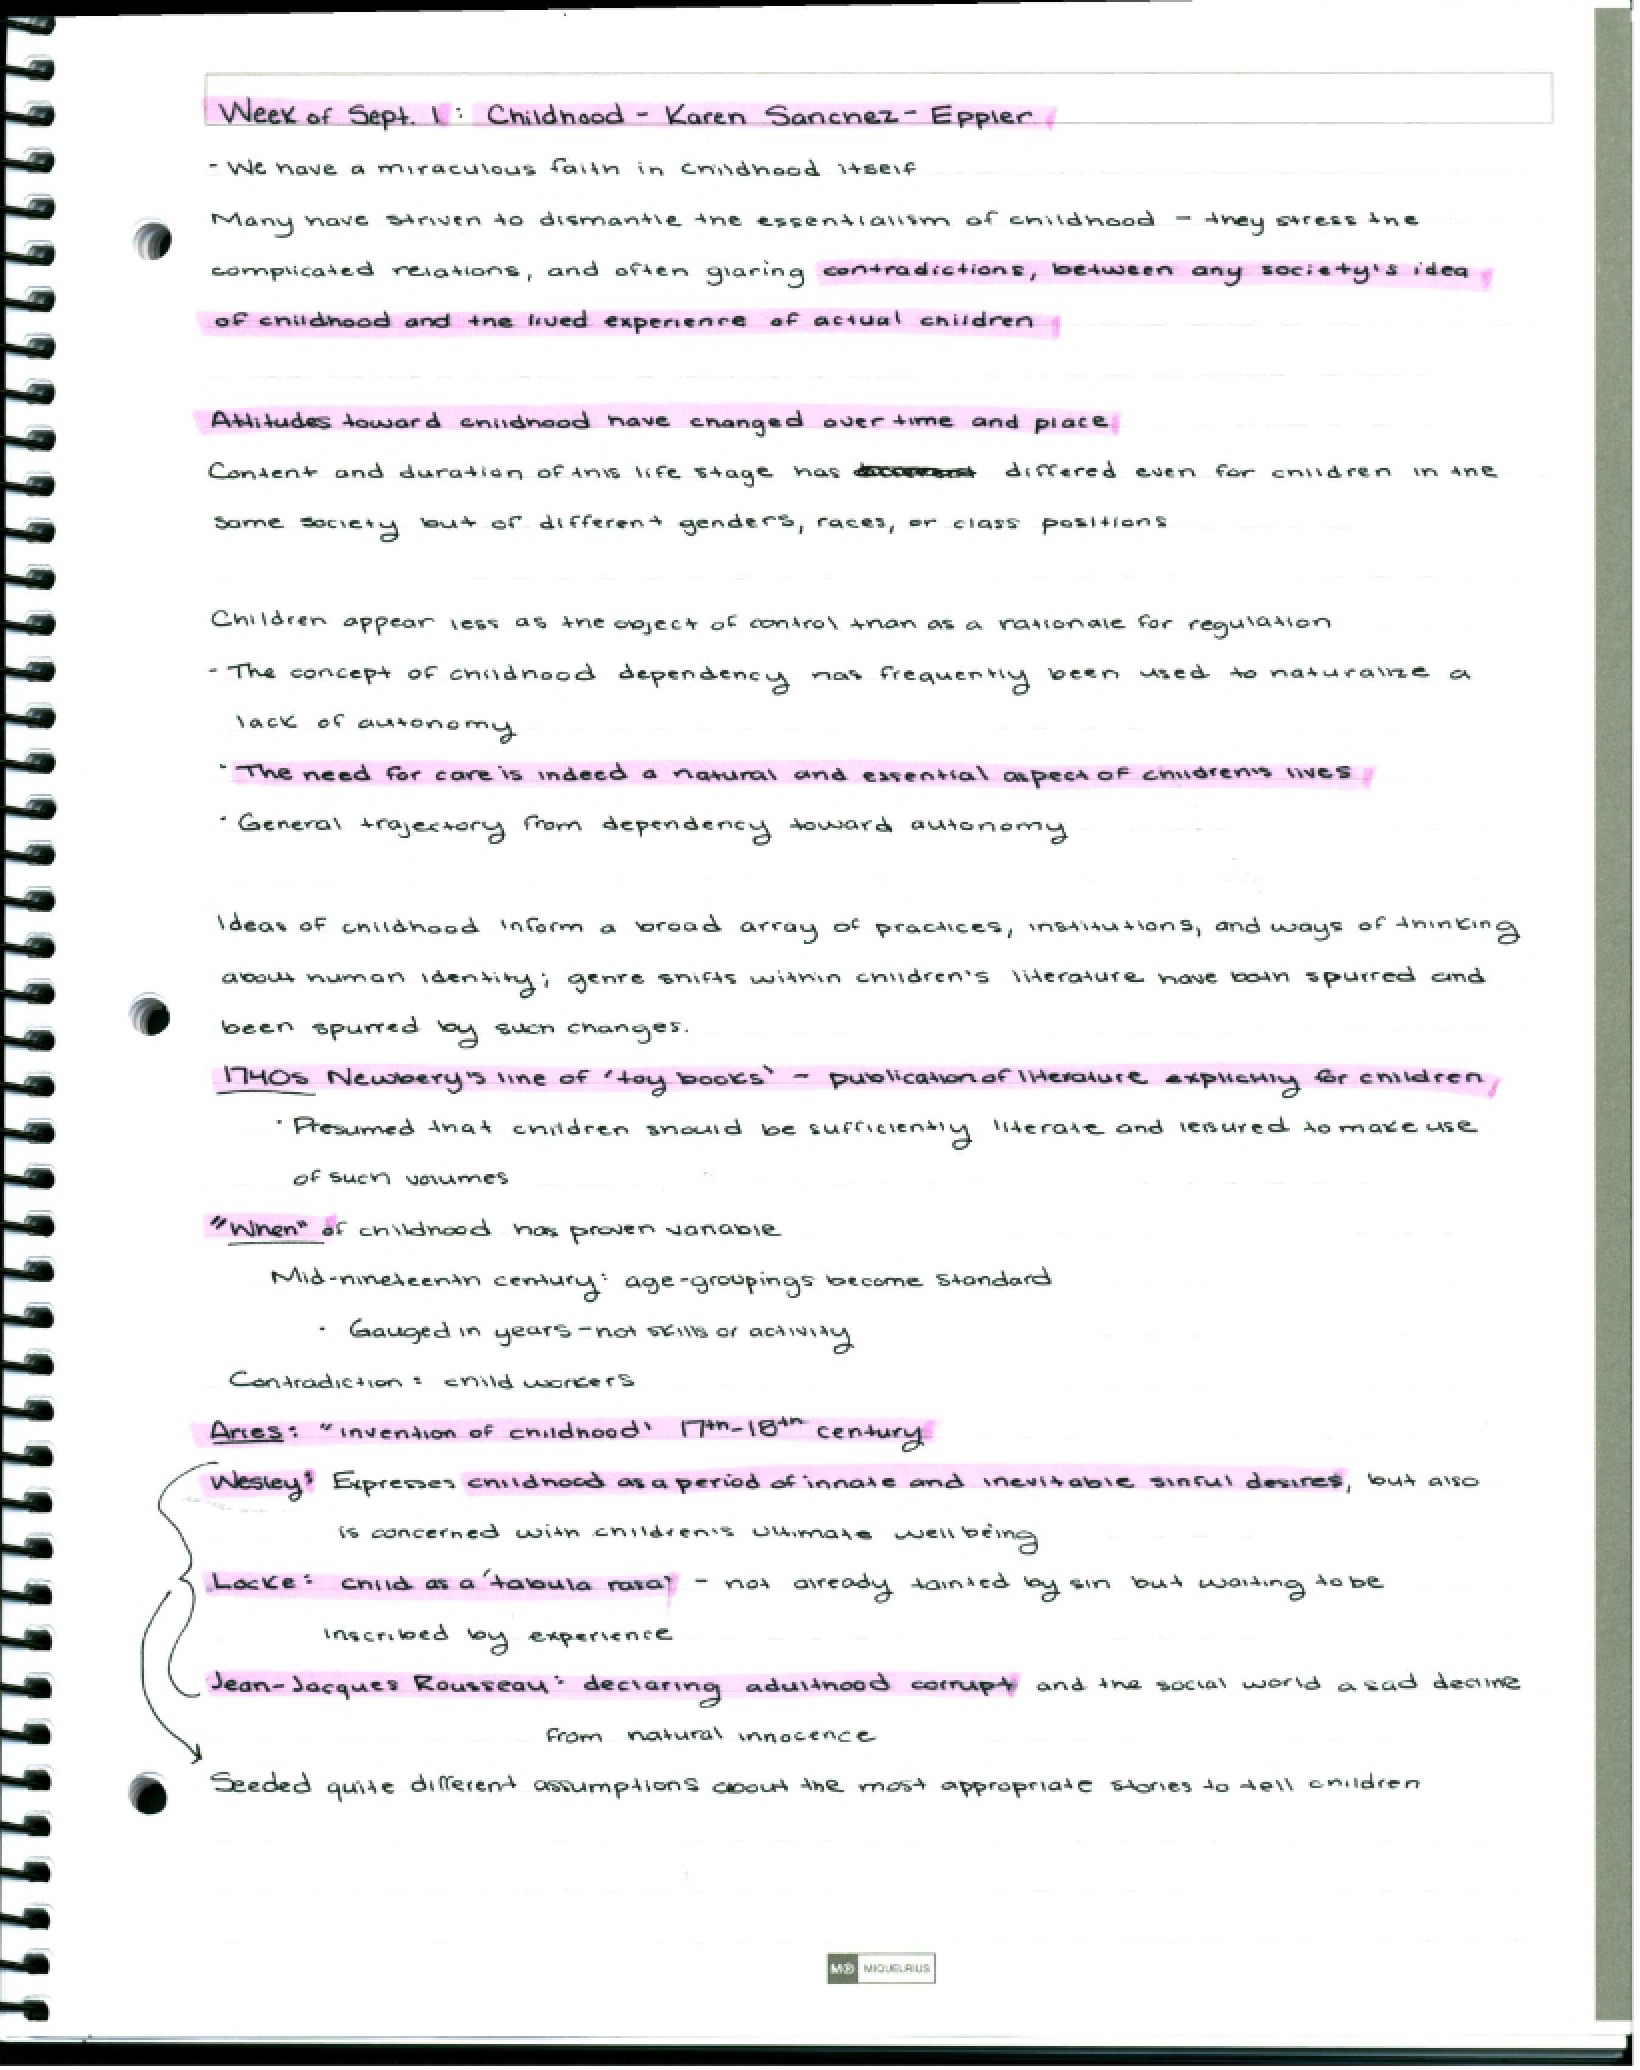 Week of Sept. 1: Childhood - Karen Sanchez-Eppler
- We have a miraculous faith in childhood itself
Many have striven to dismantle the essentialism of childhood - they stress the
complicated relations, and often glaring contradictions, between any society's idea
of childhood and the lived experience of actual children
Attitudes toward childhood have changed over time and place
Content and duration of this life stage has differed even for children in the
same society but of different genders, races, or class positions
Children appear less as the object of control than as a rationale for regulation
- The concept of childhood dependency has frequently been used to naturalize a
lack of autonomy
· The need for care is indeed a natural and essential aspect of children's lives
· General trajectory from dependency toward autonomy
Ideas of childhood inform a broad array of practices, institutions, and ways of thinking
about human identity; genre shifts within children's literature have both spurred and
been spurred by such changes.
1740s Newbery's line of 'toy books' - publication of literature explicitly for children
· Presumed that children should be sufficiently literate and leisured to make use
of such volumes
"When" of childhood has proven variable
Mid-nineteenth century: age-groupings become standard
· Gauged in years - not skills or activity
Contradiction: child workers
Aries: "invention of childhood' 17th-18th century
Wesley: Expresses childhood as a period of innate and inevitable sinful desires, but also
is concerned with children's ultimate well being
Locke: child as a 'tabula rasa' - not already tainted by sin but waiting to be
inscribed by experience
Jean-Jacques Rousseau: declaring adulthood corrupt and the social world a sad decline
from natural innocence
Seeded quite different assumptions about the most appropriate stories to tell children
MR MIQUELRIUS